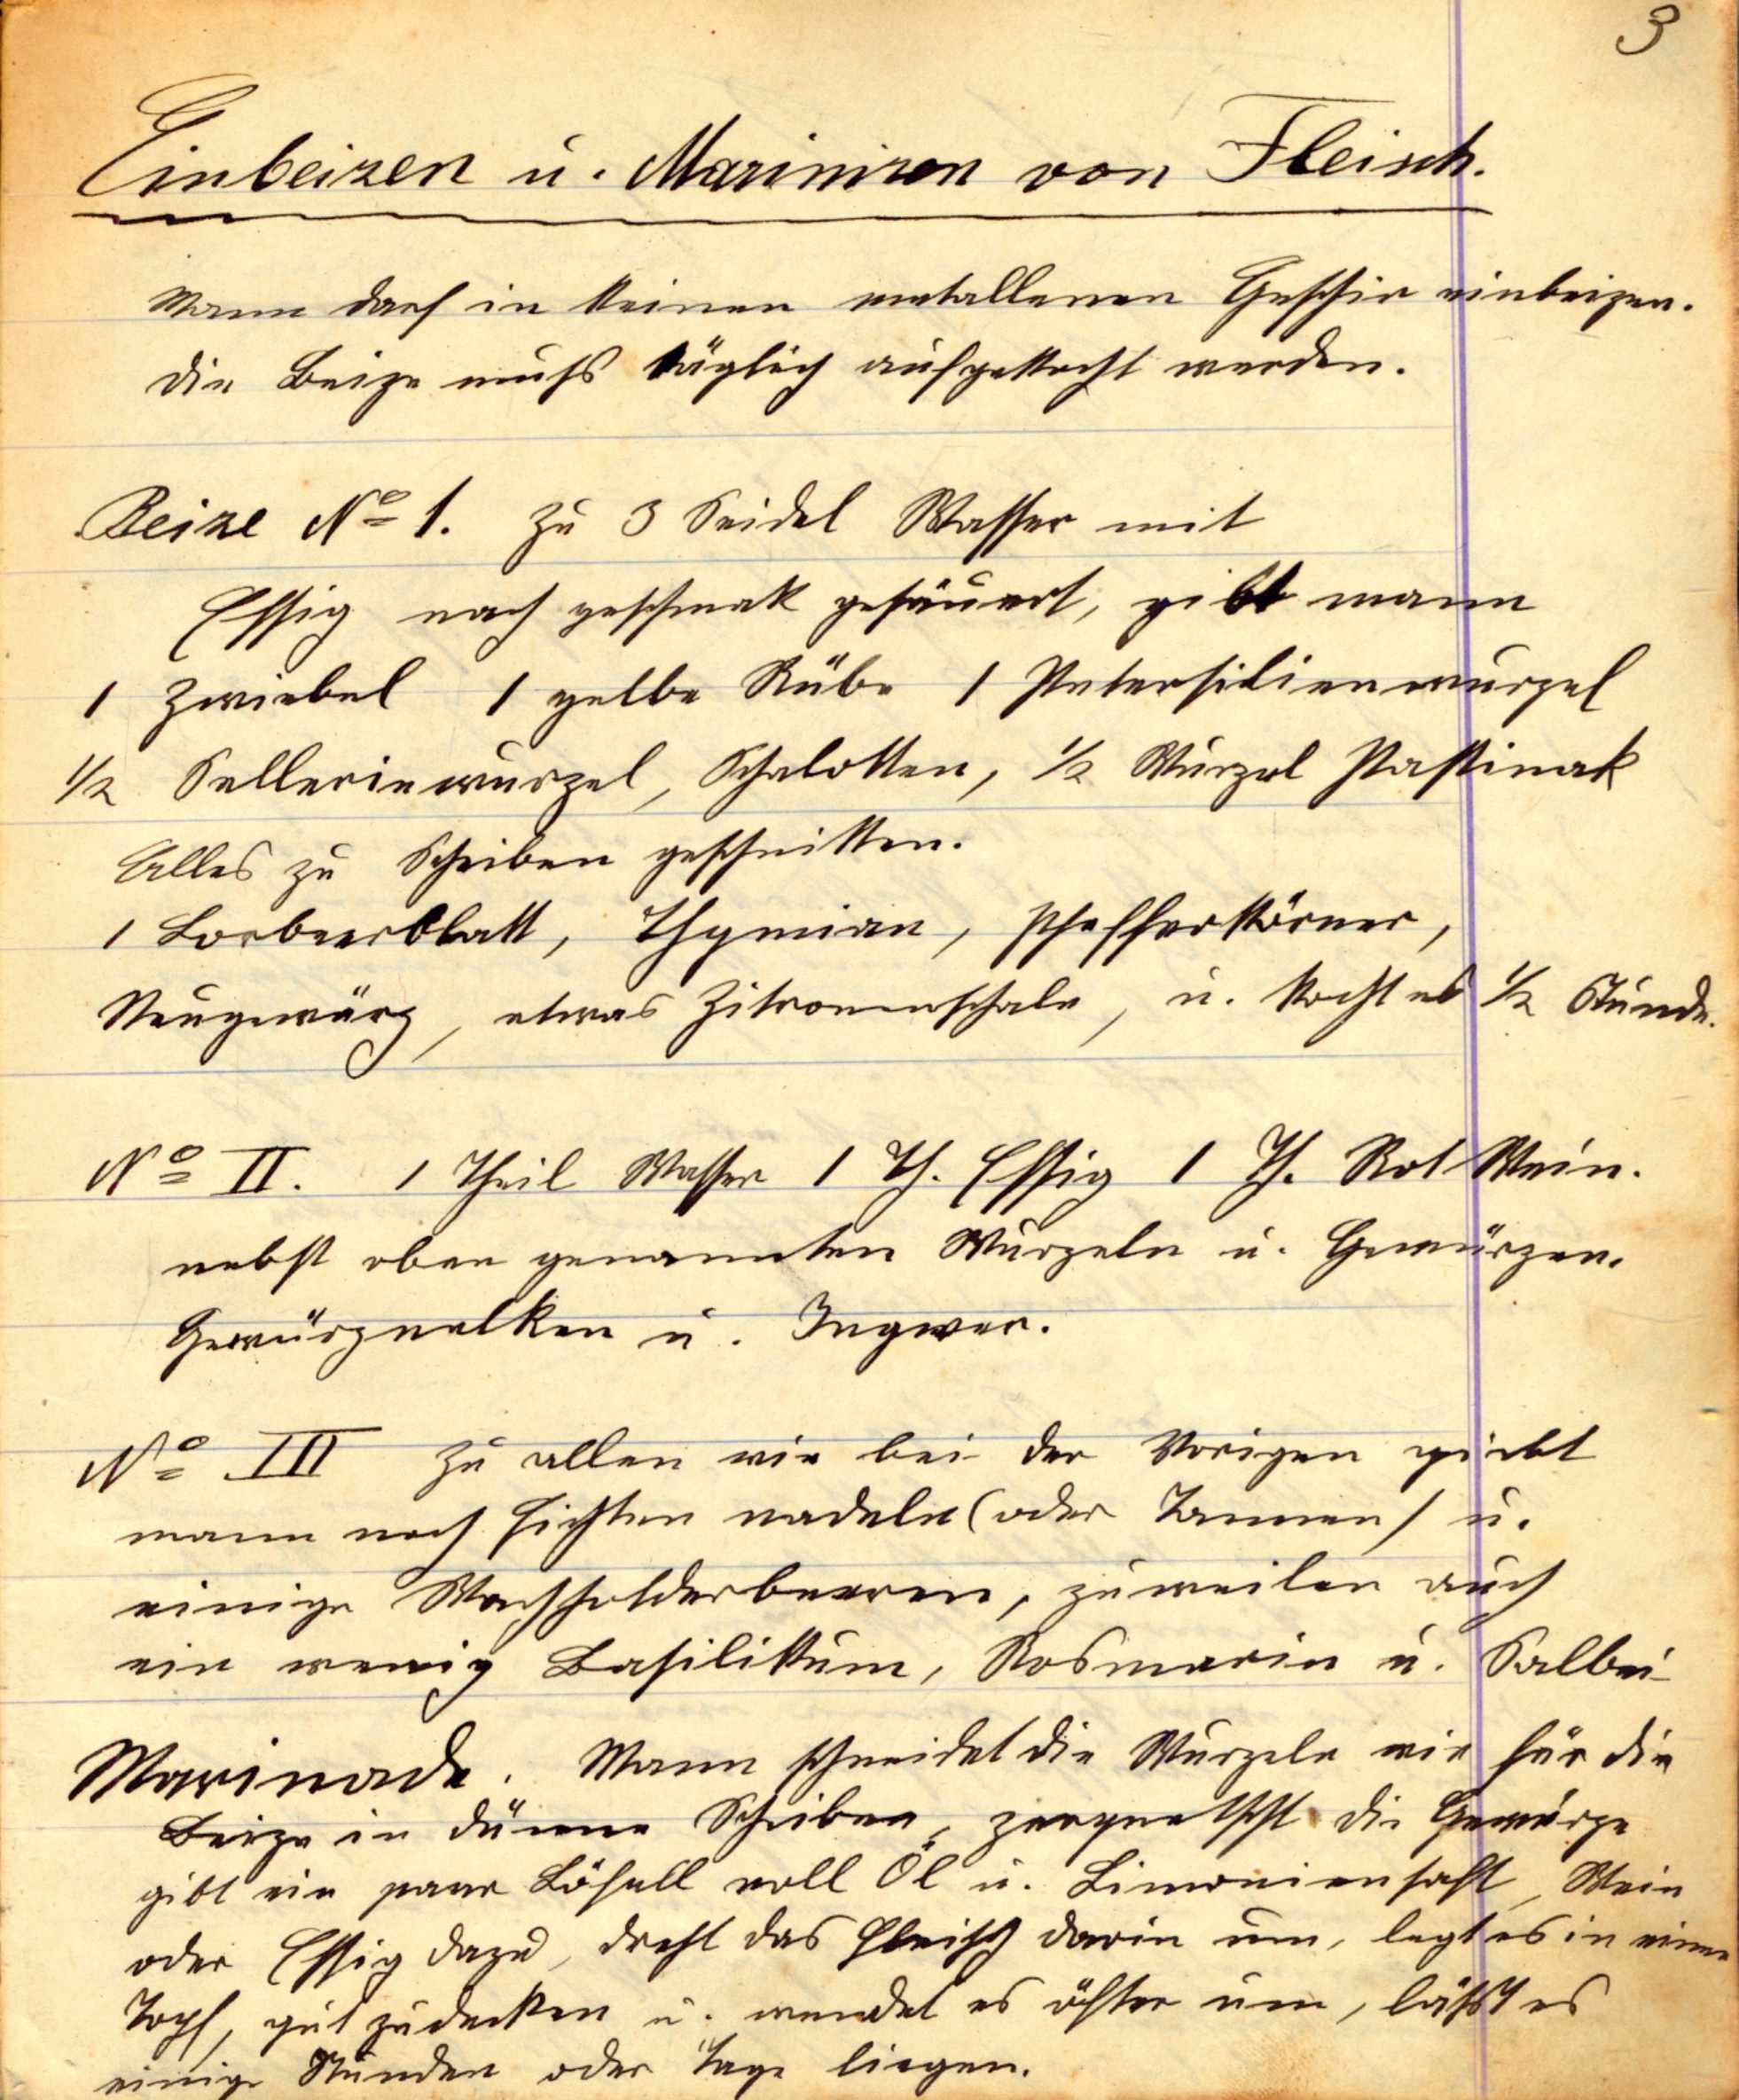 3
Einbeizen u. Marinizen von Fleisch.
Mann darf in keinen metallenen Geschir einbeizen.
Die Beize muss täglich aufgekocht werden.
Beize No 1. Zu 3 Seidel Wasser mit
Essig nach geschmak gesäuert, gibt mann
1 Zwiebel 1 gelbe Rübe 1 Petersilienwurzel
1/2 Selleriewurzel, Schalotten, 1/2 Wurzel Pastinak
Alles zu Scheiben geschnitten.
1 Lorbeerblatt, Thymian, Pfefferkörner,
Neugewürz, etwas Zitronenschale, u. kocht es 1/2 Stunde.
No II. 1 Theil Wasser 1 Th. Essig 1 Th. Rot Wein.
nebst oben genannten Wurzeln u. Gewürzen.
Gewürznelken u. Ingwer.
No III Zu allen wie bei der Vorigen giebt
mann noch Fichten nadeln (oder Tannen) u.
einige Wachholderbeeren, zuweilen auch
ein wenig Basilikum, Rosmarin u. Salbei
Marinade. Mann schneidet die Wurzeln wie für die
Beize in dünne Scheiben, zerquetscht die Gewürze
gibt ein paar Löfell voll Öl u. Limoniensaft, Wein
oder Essig dazu, dreht das Fleisch darin um, legt es in einen
Topf, gut zudecken u. wendet es öfter um, lässt es
einige Stunden oder Tage liegen.